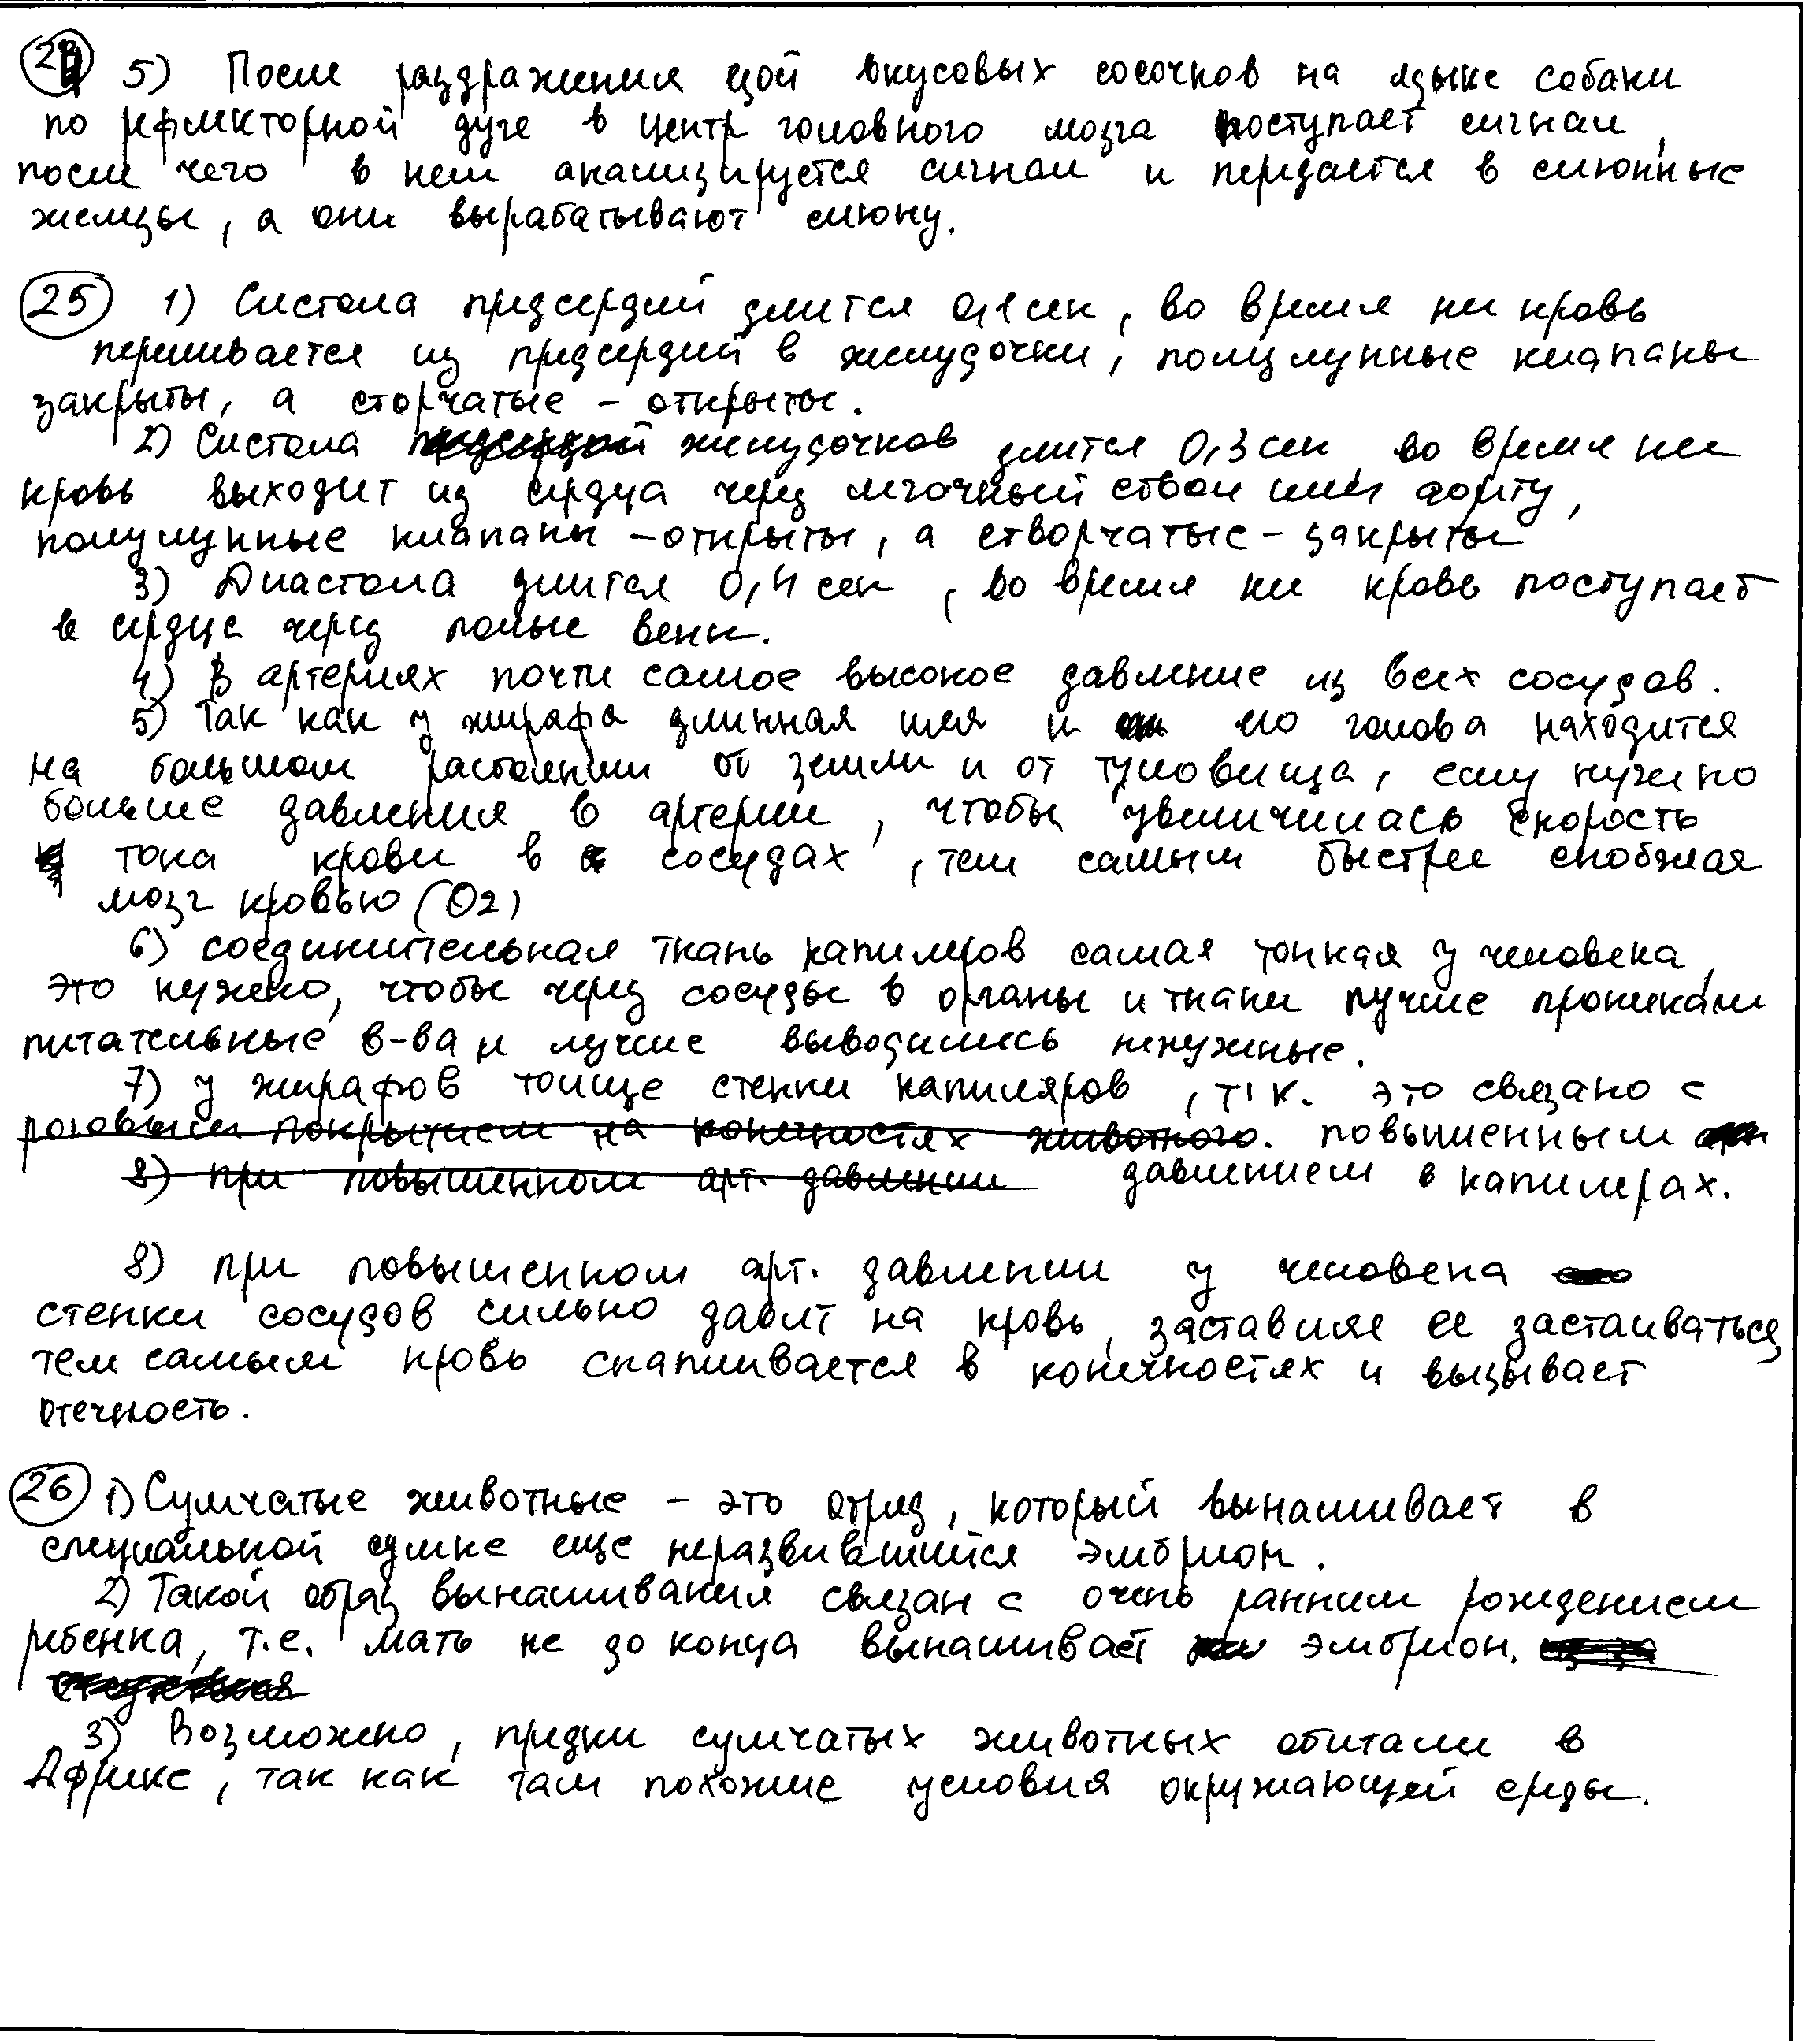 24 5) После раздражения едой вкусовых сосочков на языке собаки
по рефлекторной дуге в центр головного мозга поступает сигнал,
после чего в нем анализируется сигнал и передается в слюнные
железы, а они вырабатывают слюну.
25 1) Систола предсердий длится 0,1 сек, во время нее кровь
переливается из предсердий в желудочки, полулунные клапаны
закрыты, а сторчатые - открыты.
2) Систола желудочков длится 0,3 сек во время нее
кровь выходит из сердца через легочный ствол или аорту,
полулунные клапаны - открыты, а створчатые - закрыты
3) Диастола длится 0,4 сек, во время нее кровь поступает
в сердце через полые вены.
4) В артериях почти самое высокое давление из всех сосудов.
5) Так как у жирафа длинная шея и его голова находится
на большом растоянии от земли и от туловища, ему нужно
больше давления в артерии, чтобы увеличилась скорость
тока крови в сосудах, тем самым быстрее снобжая
мозг кровью (O2)
6) соединительная ткань капиляров самая тонкая у человека,
это нужно, чтобы через сосуды в органы и ткани лучше проникали
питательные в-ва и лучше выводились ненужные.
7) у жирафов толще стенки капиляров, т.к. это связано с
роговым покрытием на конечностях животного. повышенным
8) при повышенном арт. давлении давлением в капилярах.
8) при повышенном арт. давлении у человека
стенки сосудов сильно давят на кровь, заставляя ее застаиваться,
тем самым кровь скапливается в конечностях и вызывает
отечность.
26 1) Сумчатые животные - это отряд, который вынашивает в
специальной сумке еще неразвившийся эмбрион.
2) Такой образ вынашивания связан с очень ранним рождением
ребенка, т.е. мать не до конца вынашивает эмбрион.
3) Возможно, предки сумчатых животных обитали в
Африке, так как там похожие условия окружающей среды.